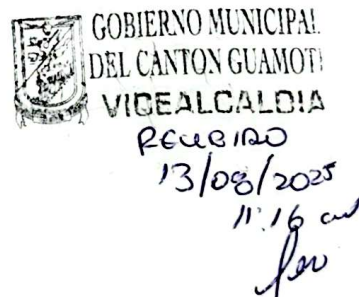 GOBIERNO MUNICIPAL
DEL CANTON GUAMOTE
VICEALCALDIA
RECIBIDO
13/08/2025
11:16 am